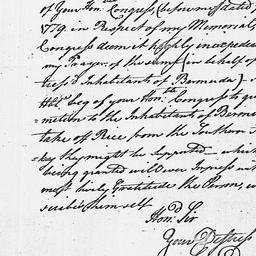 of Your Hon. Congress, (before stated
1779. in Respect of my Memorial,
Congress deem it highly inexpedie
my Prayer of the same (in behalf of
tress'd Inhabitants of Bermuda)
beg of your Hon.ble Congress to
-motion to the Inhabitants of Bermu
take off Rice from the Southern
-ky they might be Supported which
being granted will ever Impress wit
most lively Gratitude the Persons, w
himself
Hon.d Sir
Your Distress